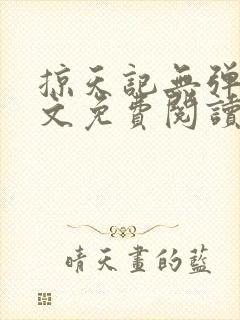 掠天記無弹
文免費閱讀
晴天畫的藍